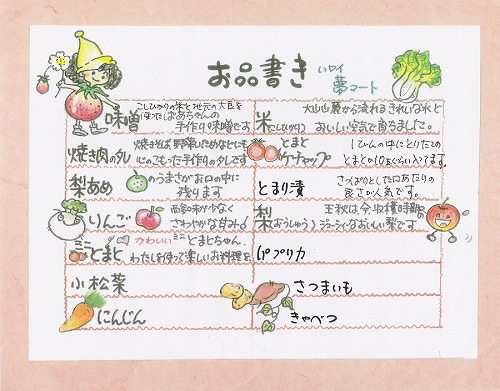 お品書き
ハワイ
夢マート
味噌
こしひかりの米と地元の大豆を
使ったおばあちゃんの
手作り味噌です
米(こしひかり)
大山山麓から流れるきれいな水と
おいしい空気で育ちました。
焼き肉のタレ
焼きそば、野菜いためなどにも
心のこもった手作りのタレです
とまと
ケチャップ
1びんの中にとりたての
とまとが10ぐらい入ってます。
梨あめ
のうまさがお口の中に
残ります
とまり漬
さっぱりとした口あたりの
良さが人気です。
りんご
さわやかな甘み
梨(おうしゅう)
王秋は今収穫時期。
ジューシーなおいしい梨です
ミニとまと
かわいいミニとまとちゃん。
わたしを使って楽しいお料理を
パプリカ
小松菜
さつまいも
にんじん
きゃべつ